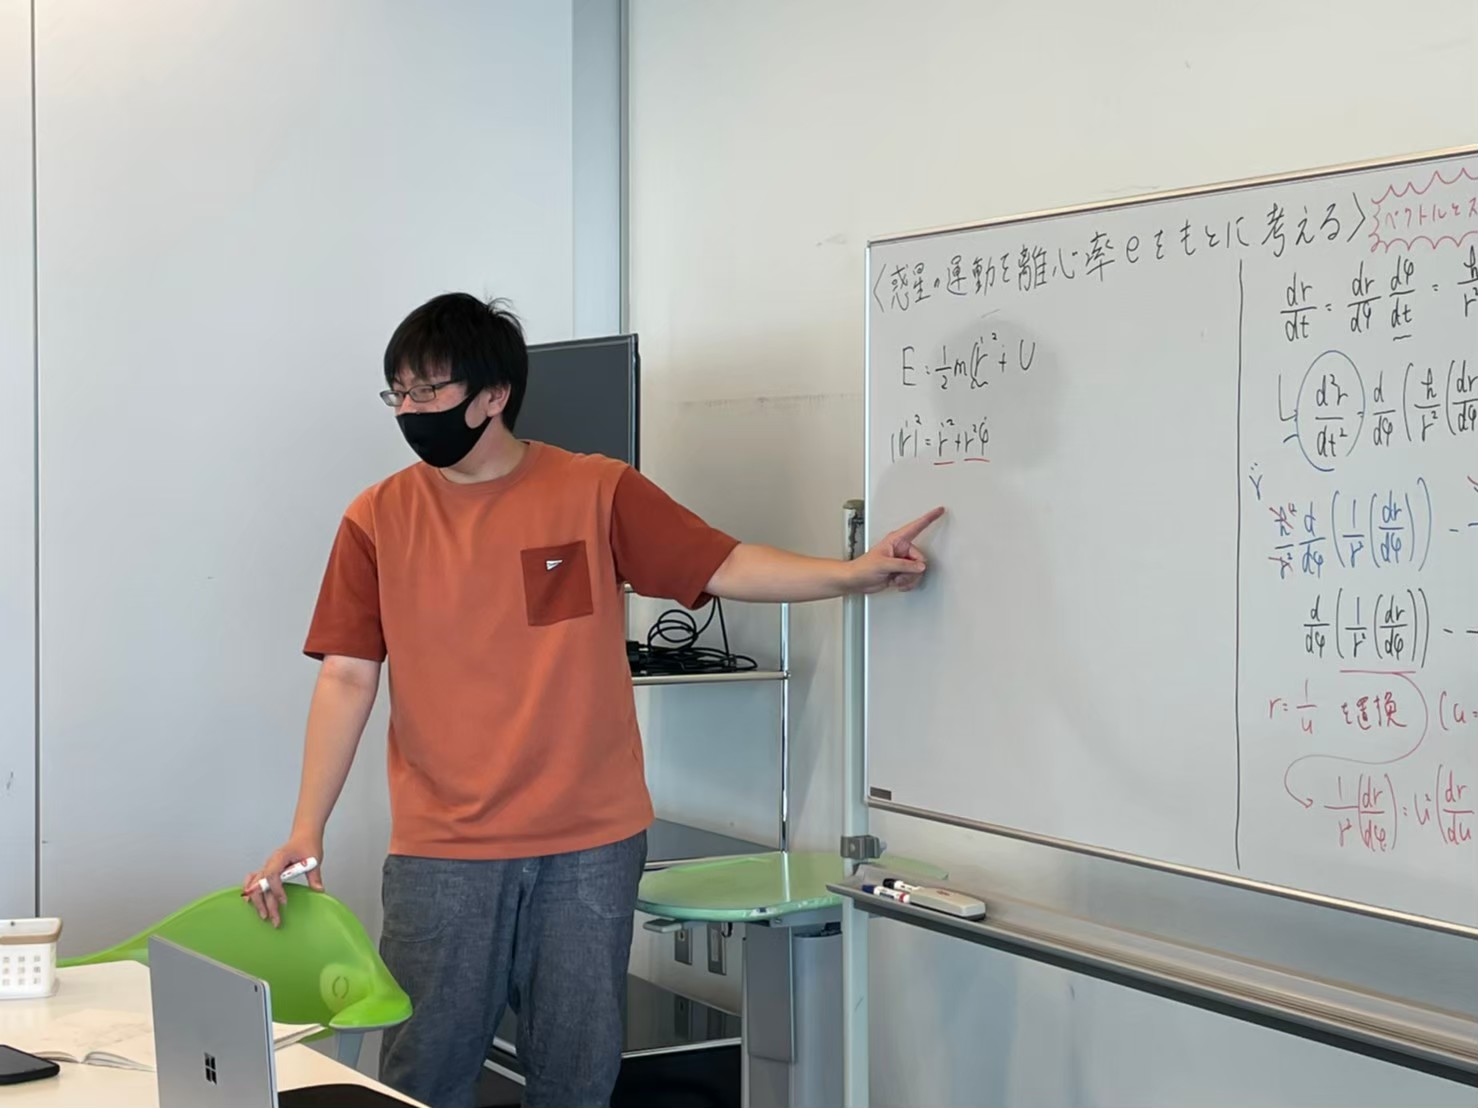 〈惑星の運動を離心率eをもとに考える〉
ベクトルとス
E = 1/2 m(ṙ² + U
|ṙ|² = ṙ² + r²φ̇
dr/dt = dr/dφ dφ/dt = h/r²
d²r/dt² d/dφ (h/r² (dr/dφ
r̈
h²/r² d/dφ (1/r² (dr/dφ)) -
d/dφ (1/r² (dr/dφ)) -
r = 1/u を置換 (u =
1/r² (dr/dφ) = u² (dr/du